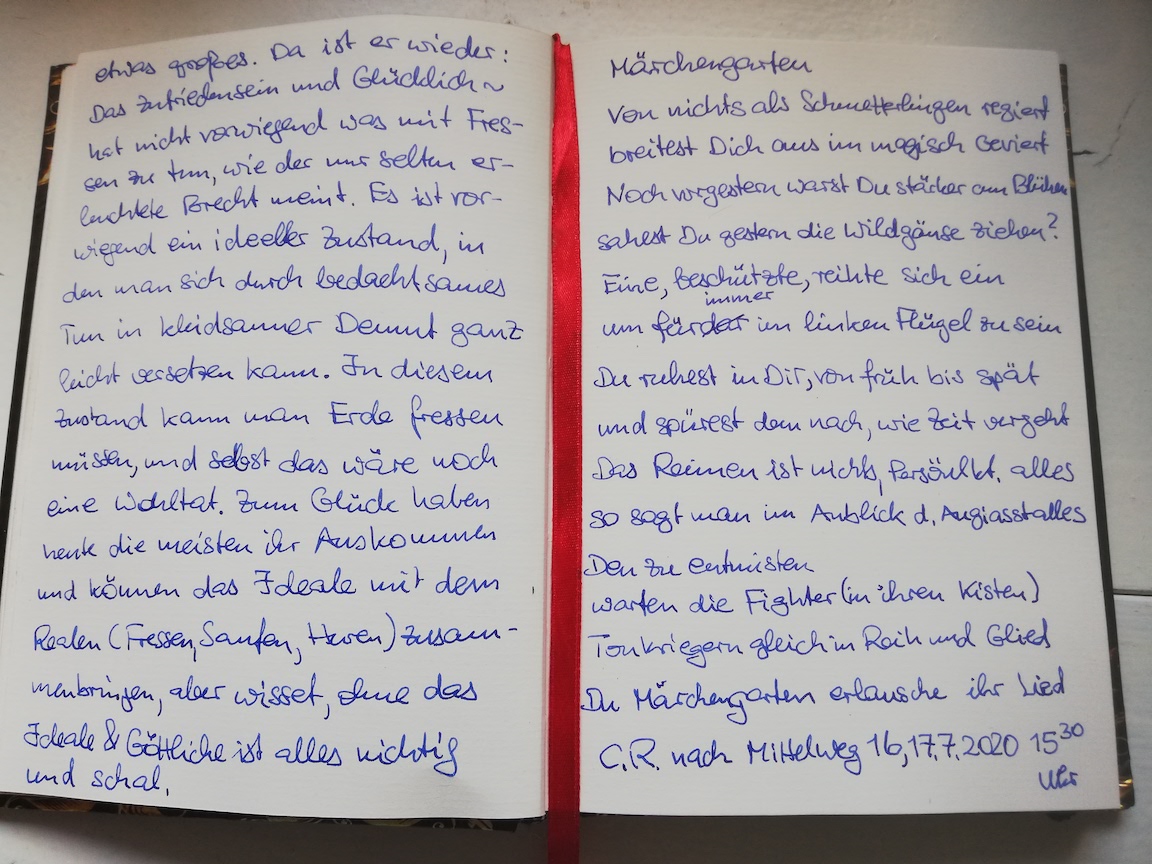 etwas großes. Da ist er wieder:
Das Zufriedensein und Glücklich~
hat nicht vorwiegend was mit Fres-
sen zu tun, wie der nur selten er-
leuchtete Brecht meint. Es ist vor-
wiegend ein ideeller Zustand, in
den man sich durch bedachtsames
Tun in kleidsamer Demut ganz
leicht versetzen kann. In diesem
Zustand kann man Erde fressen
müssen, und selbst das wäre noch
eine Wohltat. Zum Glück haben
heute die meisten ihr Auskommen
und können das Ideale mit dem
Realen (Fressen, Saufen, Huren) zusam-
menbringen, aber wisset, ohne das
Ideale & Göttliche ist alles nichtig
und schal.
Märchengarten
Von nichts als Schmetterlingen regiert
breitest Dich aus im magisch Geviert
Noch vorgestern warst Du stärker am Blühen
sahest Du gestern die Wildgänse ziehen?
Eine, beschützte, reihte sich ein
immer
um für der im linken Flügel zu sein
Du ruhest in Dir, von früh bis spät
und spürest dem nach, wie Zeit vergeht
Das Reimen ist nichts, Persönlkt. alles
so sagt man im Anblick d. Augiasstalles
Den zu entmisten
warten die Fighter (in ihren Kisten)
Tonkriegern gleich in Reih und Glied
Du Märchengarten erlausche ihr Lied
C.R. nach Mittelweg 16, 17.7.2020 15 30
Uhr